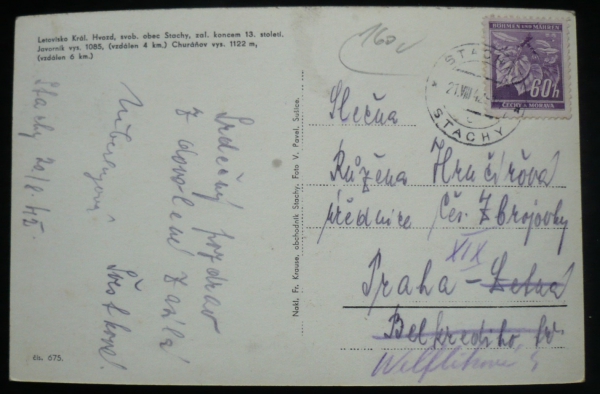 Letovisko Král. Hvozd, svob. obec Stachy, zal. koncem 13. století.
Javorník vys. 1085, (vzdálen 4 km.) Churáňov vys. 1122 m,
(vzdálen 6 km.)
Stachy 20/8 42.
Srdečný pozdrav
z dovolené zasílá
Nakl. Fr. Krause, obchodník Stachy, Foto V. Pavel, Sušice.
čís. 675.
160
BÖHMEN UND MÄHREN
60h
ČECHY A MORAVA
STACHY
21.VIII.42
STACHY
Slečna
Růžena Hručířova
úřednice Čes. Zbrojovky
XIX
Praha - Letná
Belkrediho tř